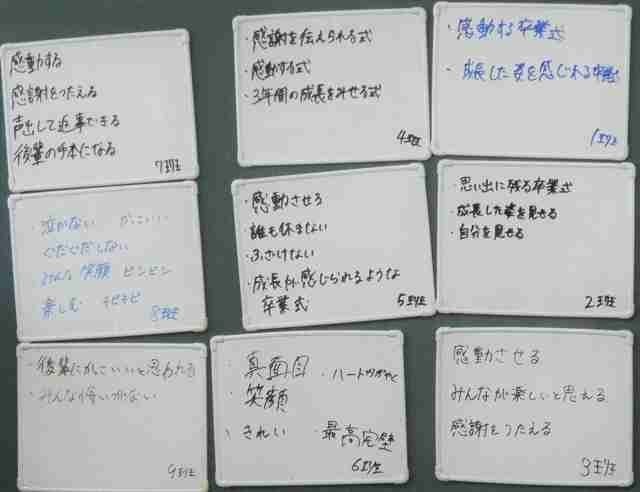 感動する
感謝をつたえる
声出して返事できる
後輩の手本になる
7班
・感謝を伝えられる式
・感動する式
・3年間の成長を見せる式
4班
・感動する卒業式
・成長した姿を感じれる卒業式
1班
泣かない かっこいい
ぐだぐだしない
みんな笑顔 ビンビン
楽しむ
8班
・感動させる
・誰も休まない
・ふざけない
・成長が感じられるような
卒業式
5班
・思い出に残る卒業式
・成長した姿を見せる
・自分を見せる
2班
・後輩にかっこいいと思われる
・みんな悔いがない
9班
・真面目
・笑顔
・きれい
・ハートがかがやく
・最高完璧
6班
感動させる
みんなが楽しいと思える
感謝をつたえる
3班